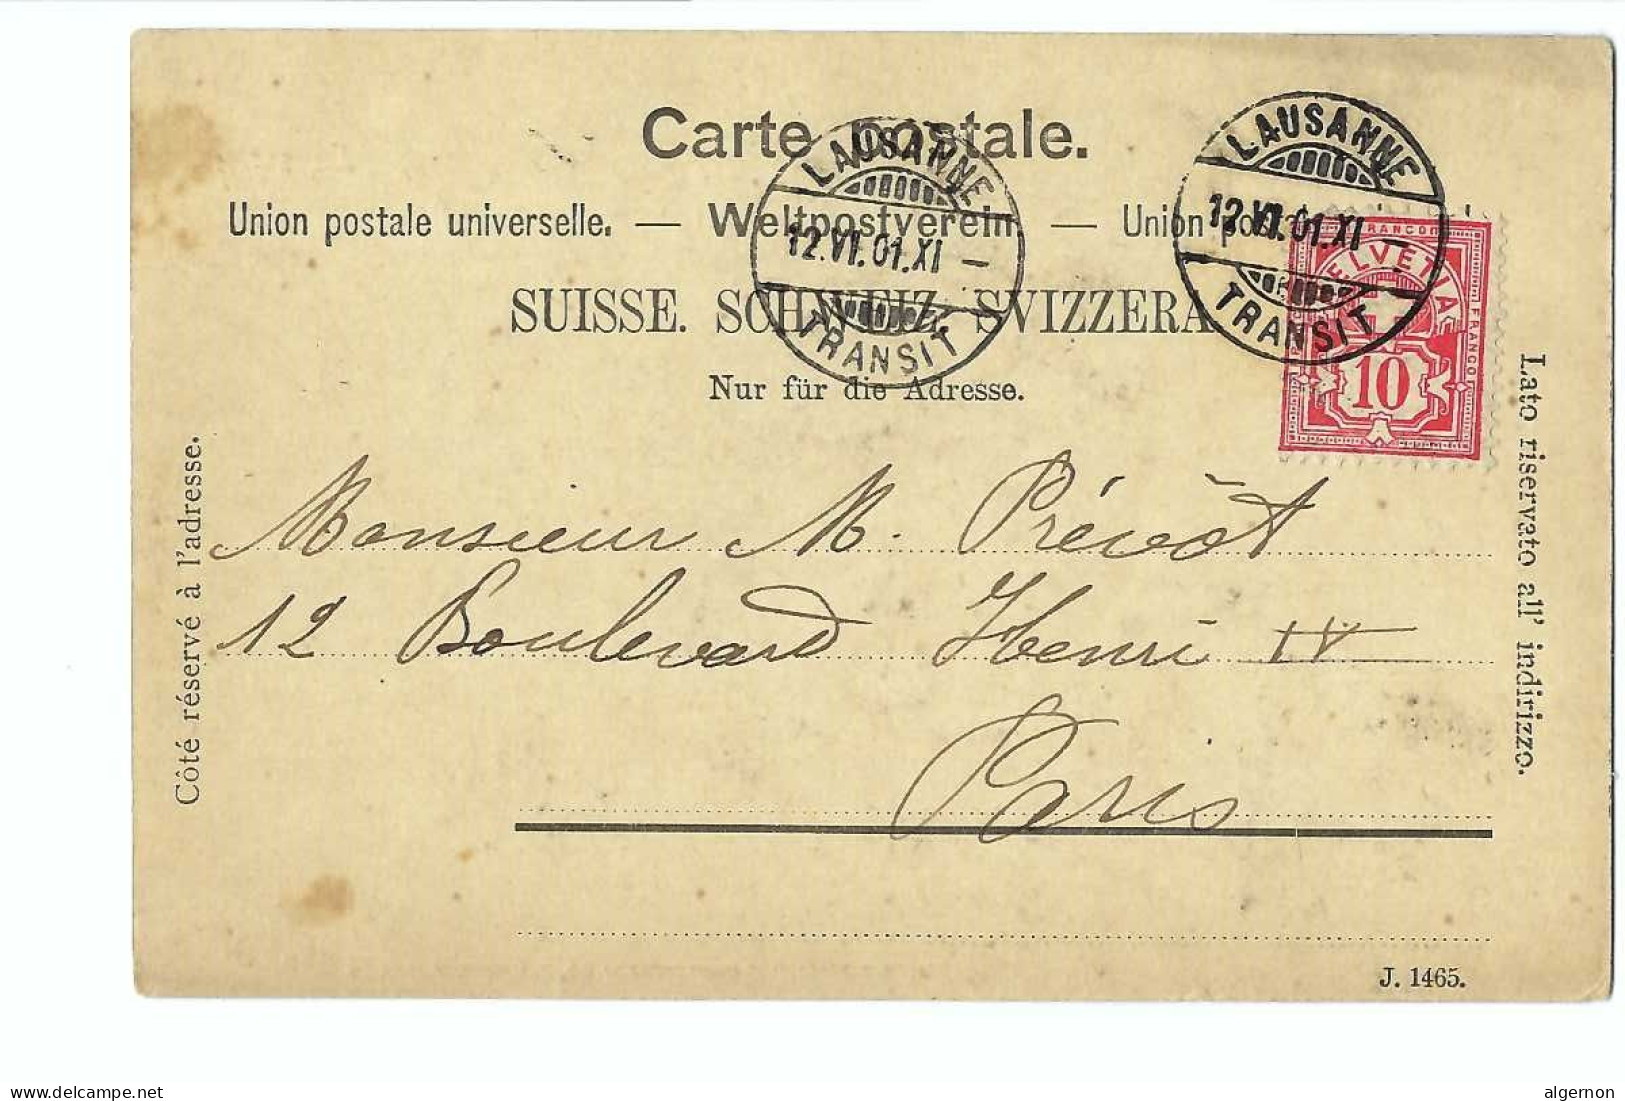 Carte postale.
Union postale universelle. — Weltpostverein. — Union postale
SUISSE. SCHWEIZ. SVIZZERA
Nur für die Adresse.
LAUSANNE
12.VI.01.XI –
TRANSIT
LAUSANNE
12.VI.01.XI –
TRANSIT
FRANCO
HELVETIA
FRANCO
10
Côté réservé à l'adresse.
Lato riservato all' indirizzo.
Monsieur M. Prévôt
12 Boulevard Henri IV
Paris
J. 1465.
delcampe.net
algernon